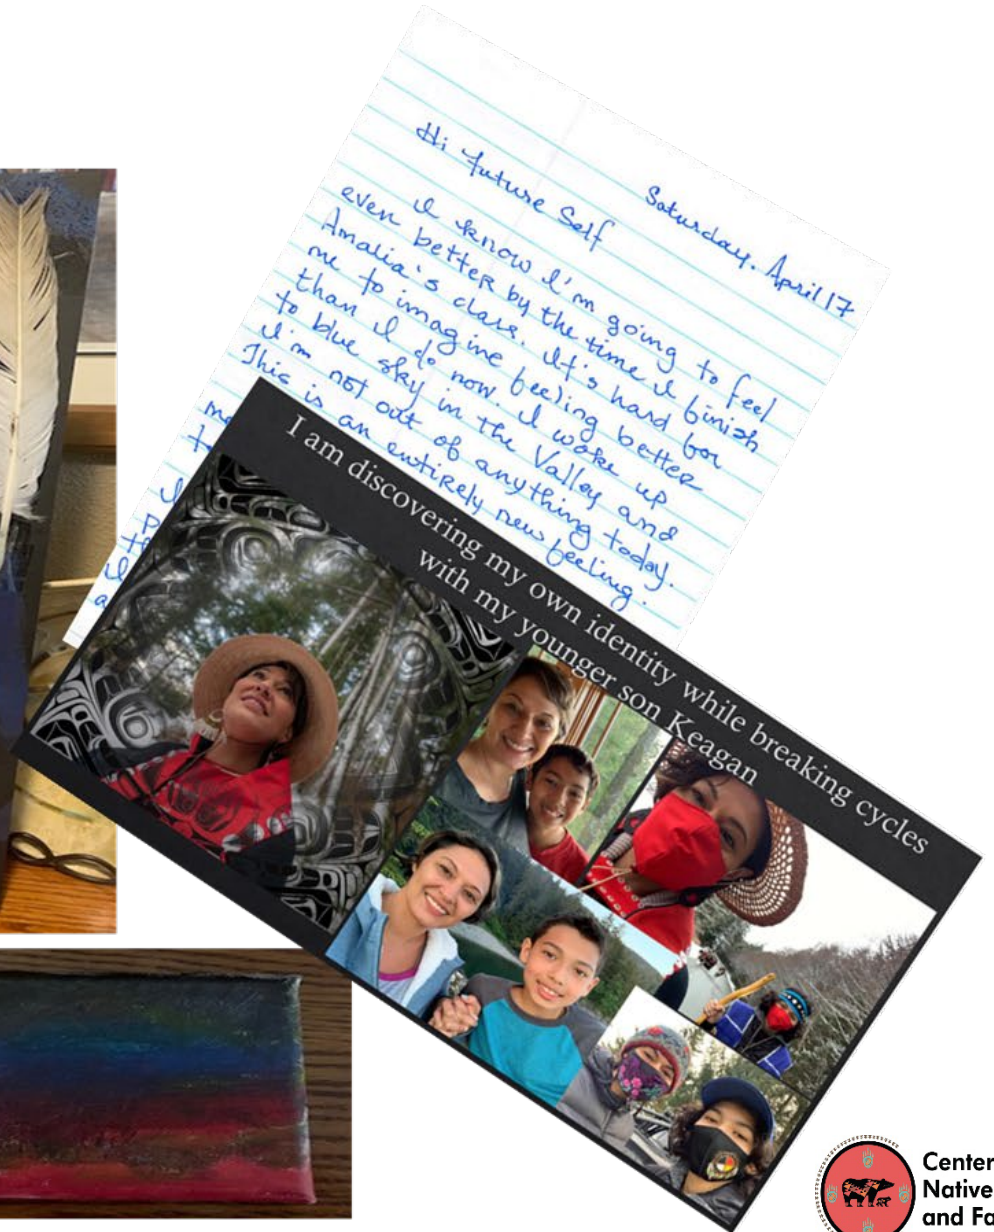 Saturday. April 17
Hi Future Self
I know I'm going to feel
even better by the time I finish
Amalia's class. It's hard for
me to imagine feeling better
than I do now. I woke up
to blue sky in the Valley and
I'm not out of anything today.
This is an entirely new feeling.
I am discovering my own identity while breaking cycles
with my younger son Keagan
Center
Native
and Fa